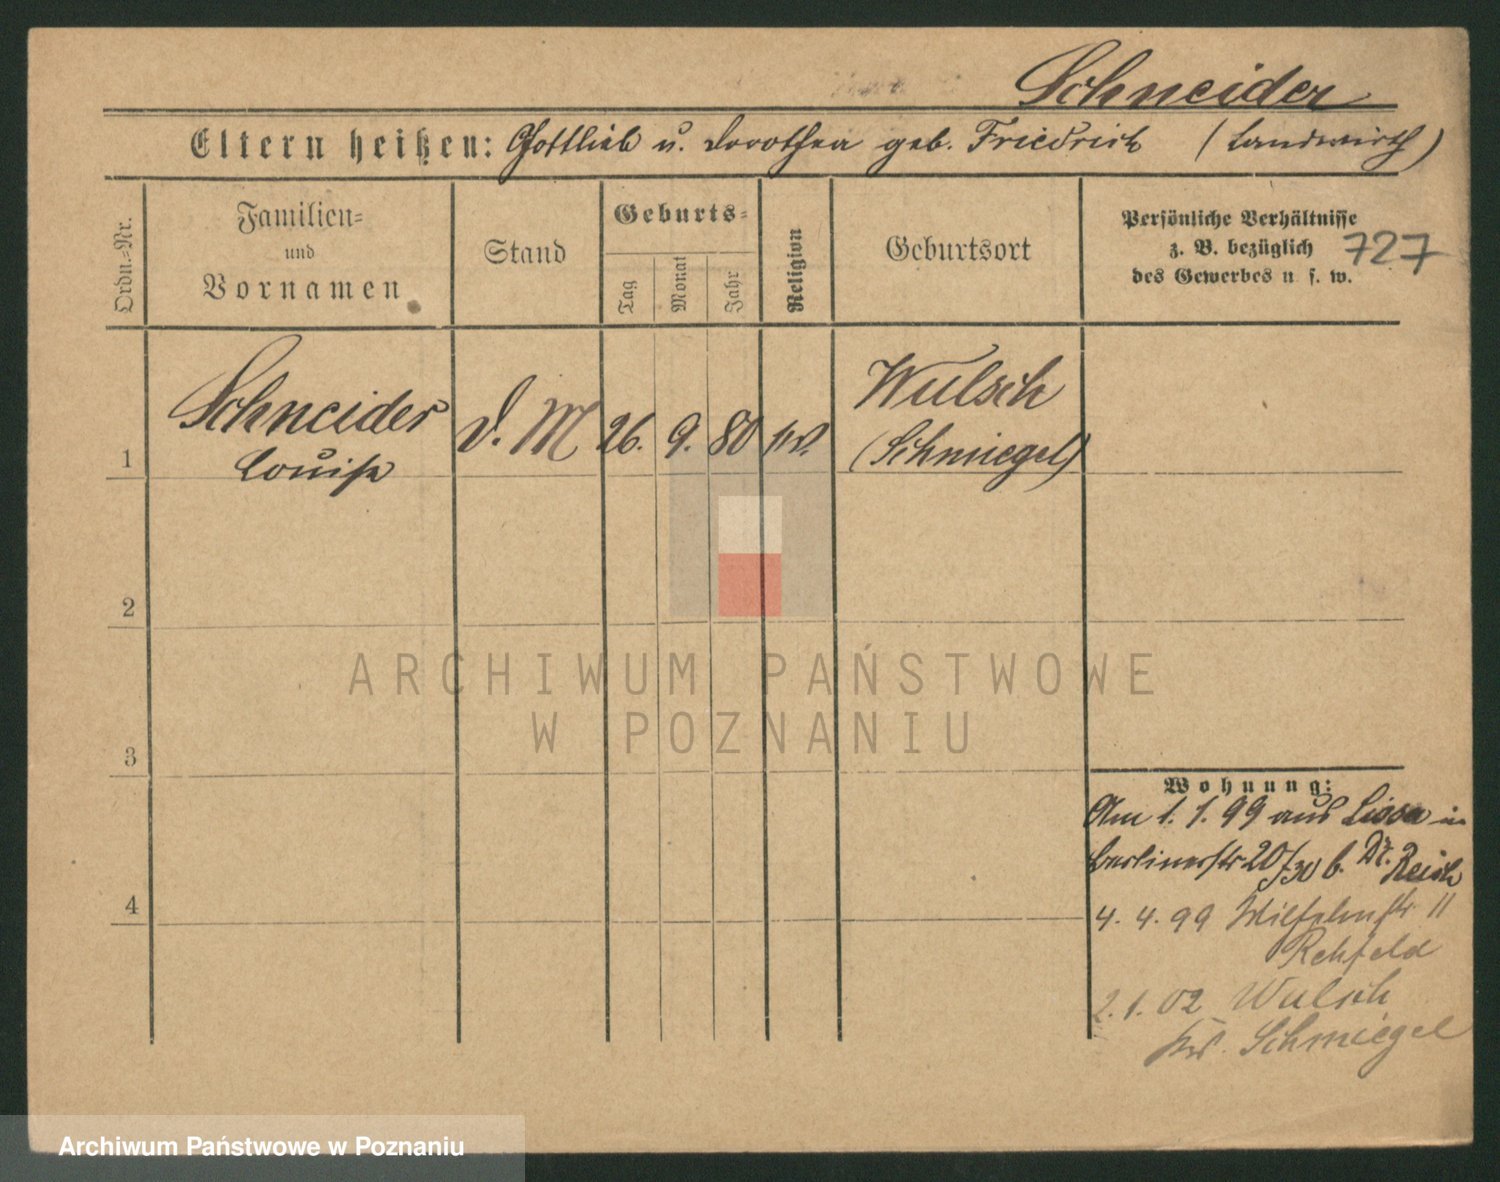 Schneider
Eltern heißen: Gottlieb u. Dorothea geb. Friedrich (Landwirth)
Ordn.-Nr.
Familien-
und
Vornamen
Stand
Geburts-
Tag
Monat
Jahr
Religion
Geburtsort
Persönliche Verhältnisse
z. B. bezüglich
des Gewerbes u. s. w.
727
1
Schneider
Louise
D. M
26. 9. 80
ev.
Wulsch
(Schmiegel)
2
ARCHIWUM PAŃSTWOWE
W POZNANIU
3
Wohnung:
Am 1. 1. 99 aus Lissa in
Berlinerstr 20/30 b. Dr. Reich
4
4. 4. 99 Wilhelmstr 11
Rehfeld
2. 1. 02 Wulsch
Kr. Schmiegel
Archiwum Państwowe w Poznaniu